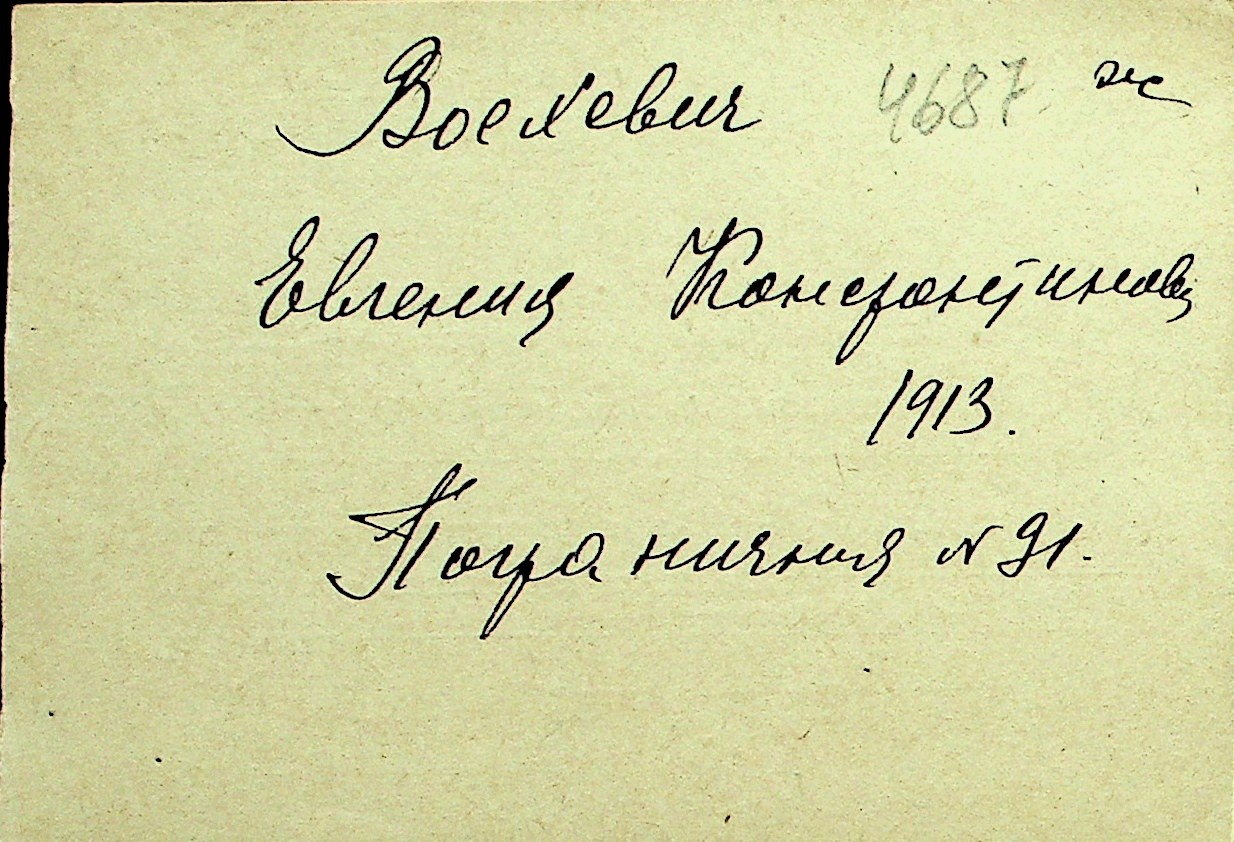 Воехевич 4687 ж
Евгения Константинов
1913.
Пограничная № 91.